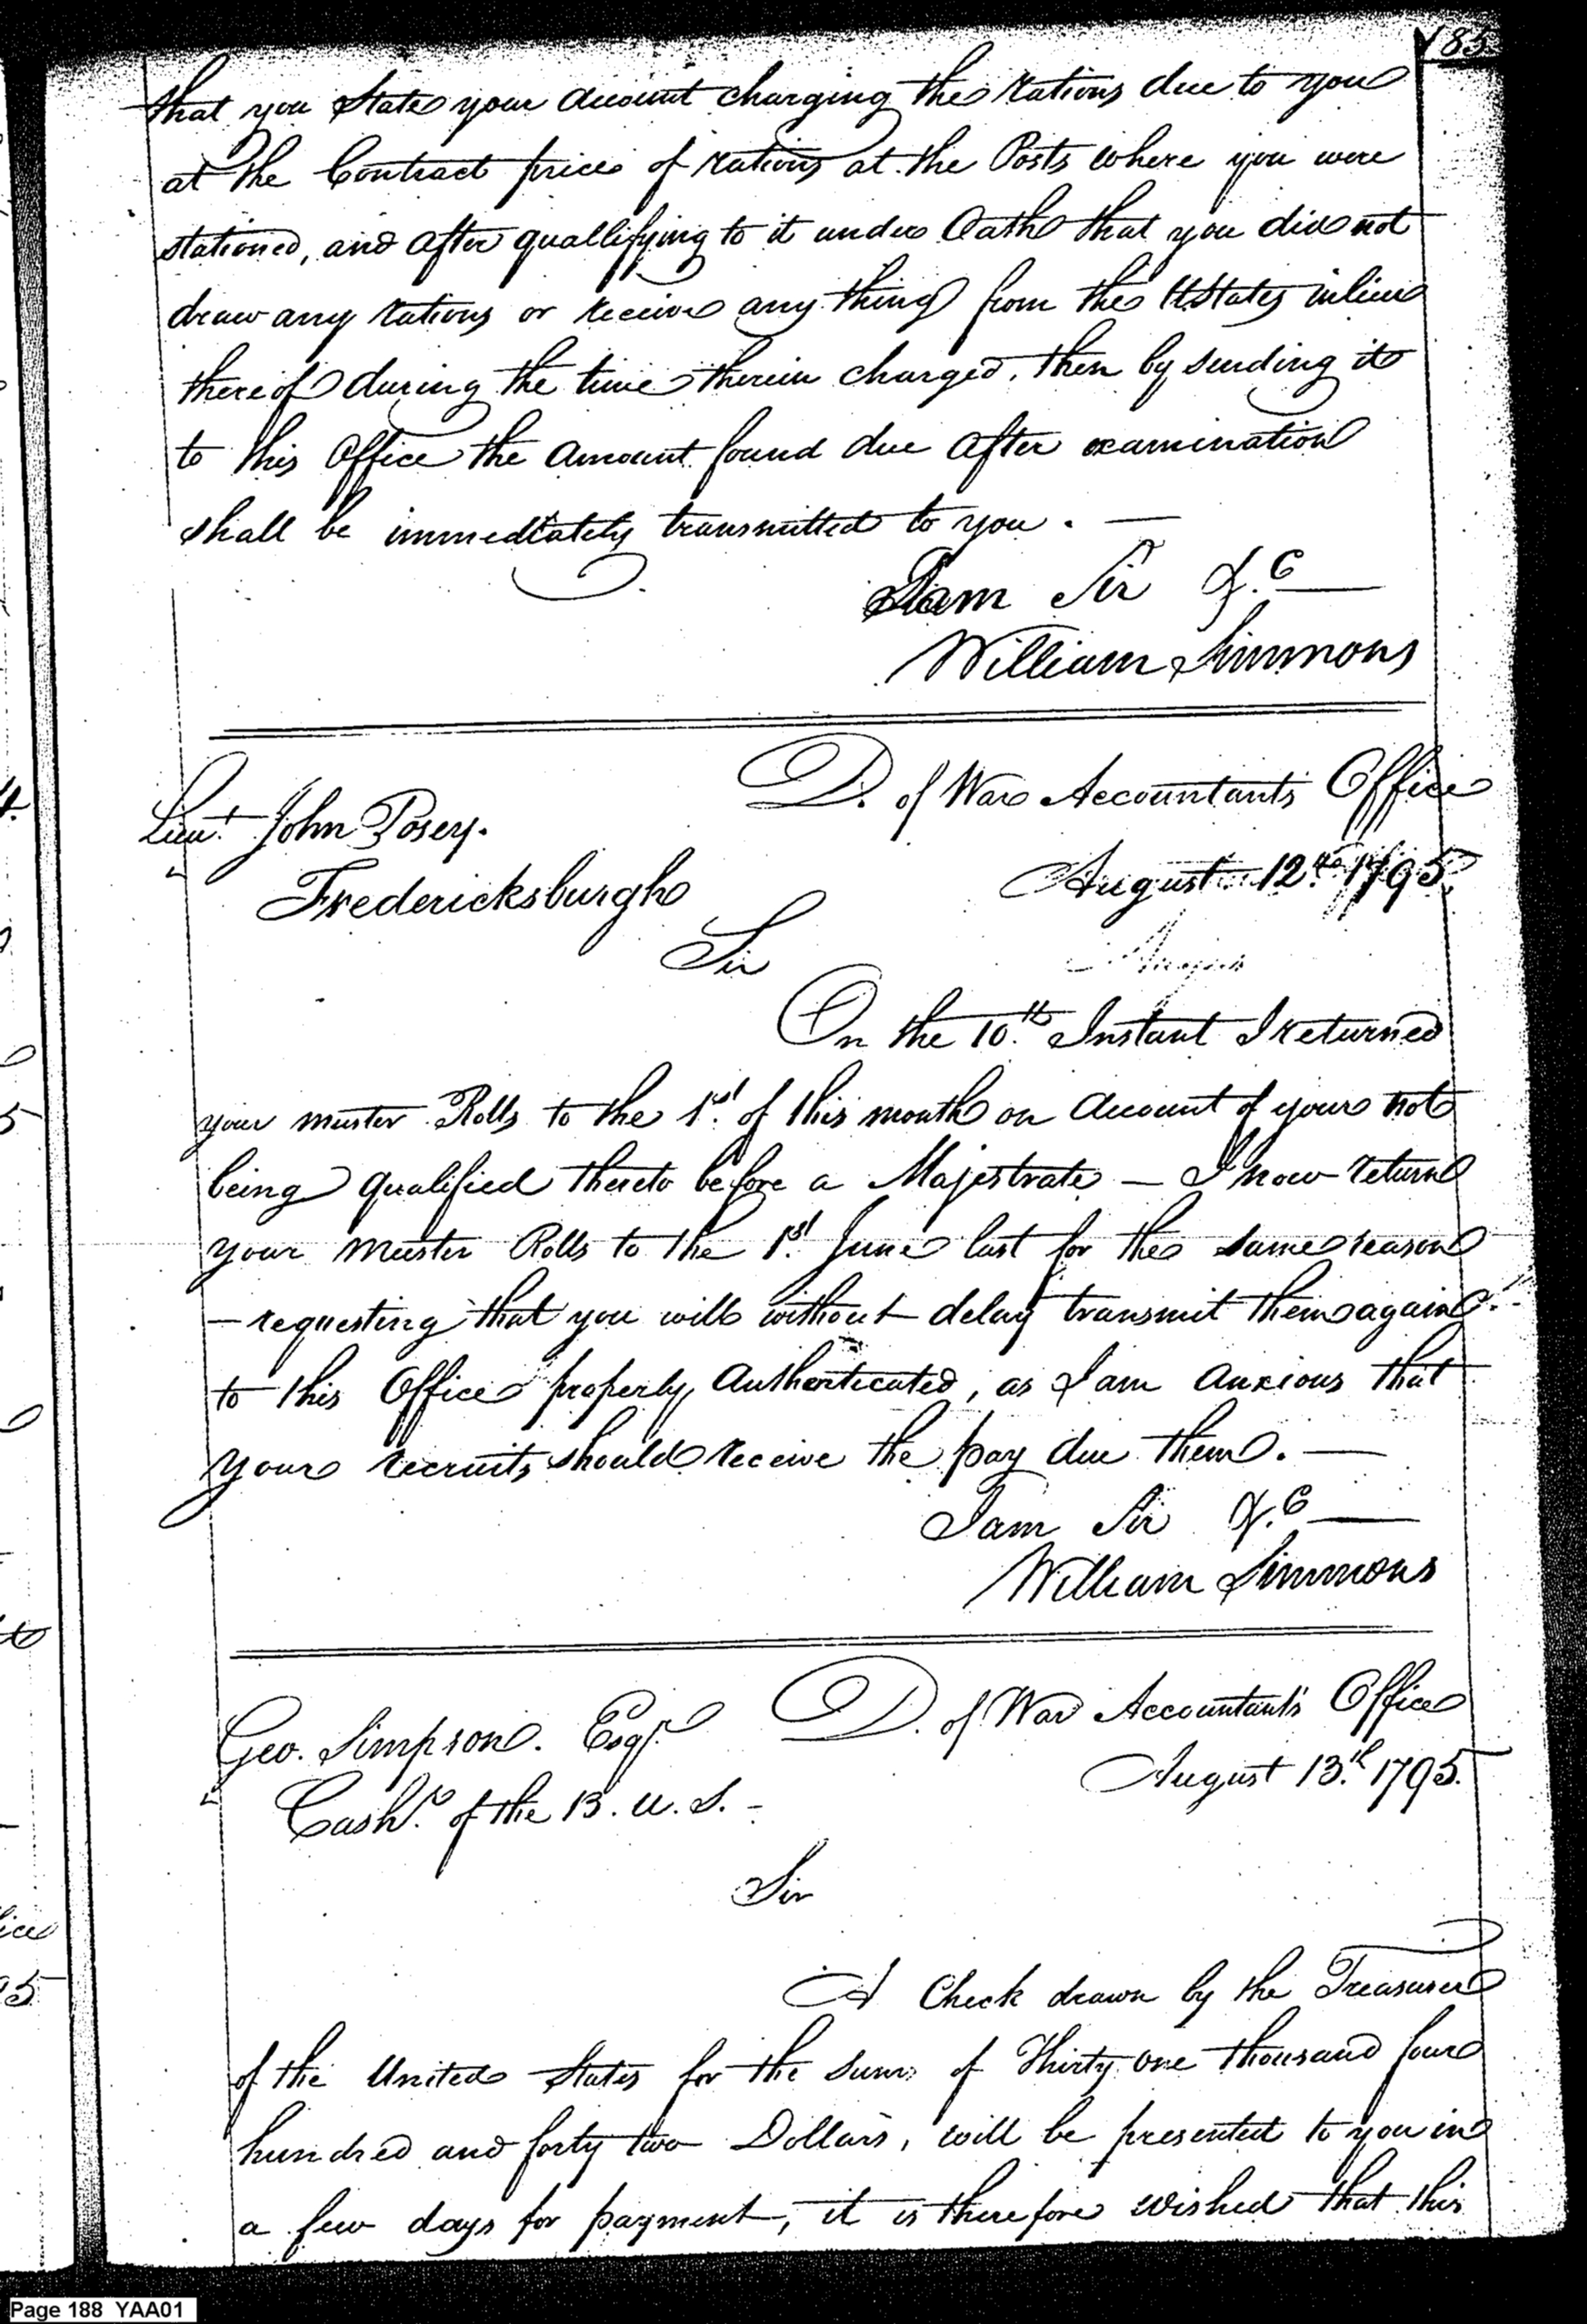 185
that you State your Account charging the rations due to you
at the Contract price of rations at the Posts where you were
stationed, and after quallifying to it under Oath that you did not
draw any rations or receive any thing from the UStates in lieu
thereof during the time therein charged, then by sending it
to this Office the amount found due after examination
shall be immediately transmitted to you. —
I am Sir &.c —
William Simmons
D. of War Accountants Office
Lieut. John Posey.
August 12.th 1795.
Fredericksburgh
Sir
On the 10.th Instant I returned
your muster Rolls to the 1st. of this month on Account of your not
being qualified thereto before a Majestrate — I now return
your Muster Rolls to the 1st. June last for the same reason
— requesting that you will without delay transmit them again
to this Office properly Authenticated, as I am Anxious that
your recruits should receive the pay due them. —
I am Sir &.c —
William Simmons
Geo. Simpson. Esqr. D. of War Accountant's Office
August 13.th 1795.
Cashr. of the B. U. S. -
Sir
A Check drawn by the Treasurer
of the United States for the Sum of Thirty one thousand four
hundred and forty two Dollars, will be presented to you in
a few days for payment, it is therefore wished that this
Page 188 YAA01